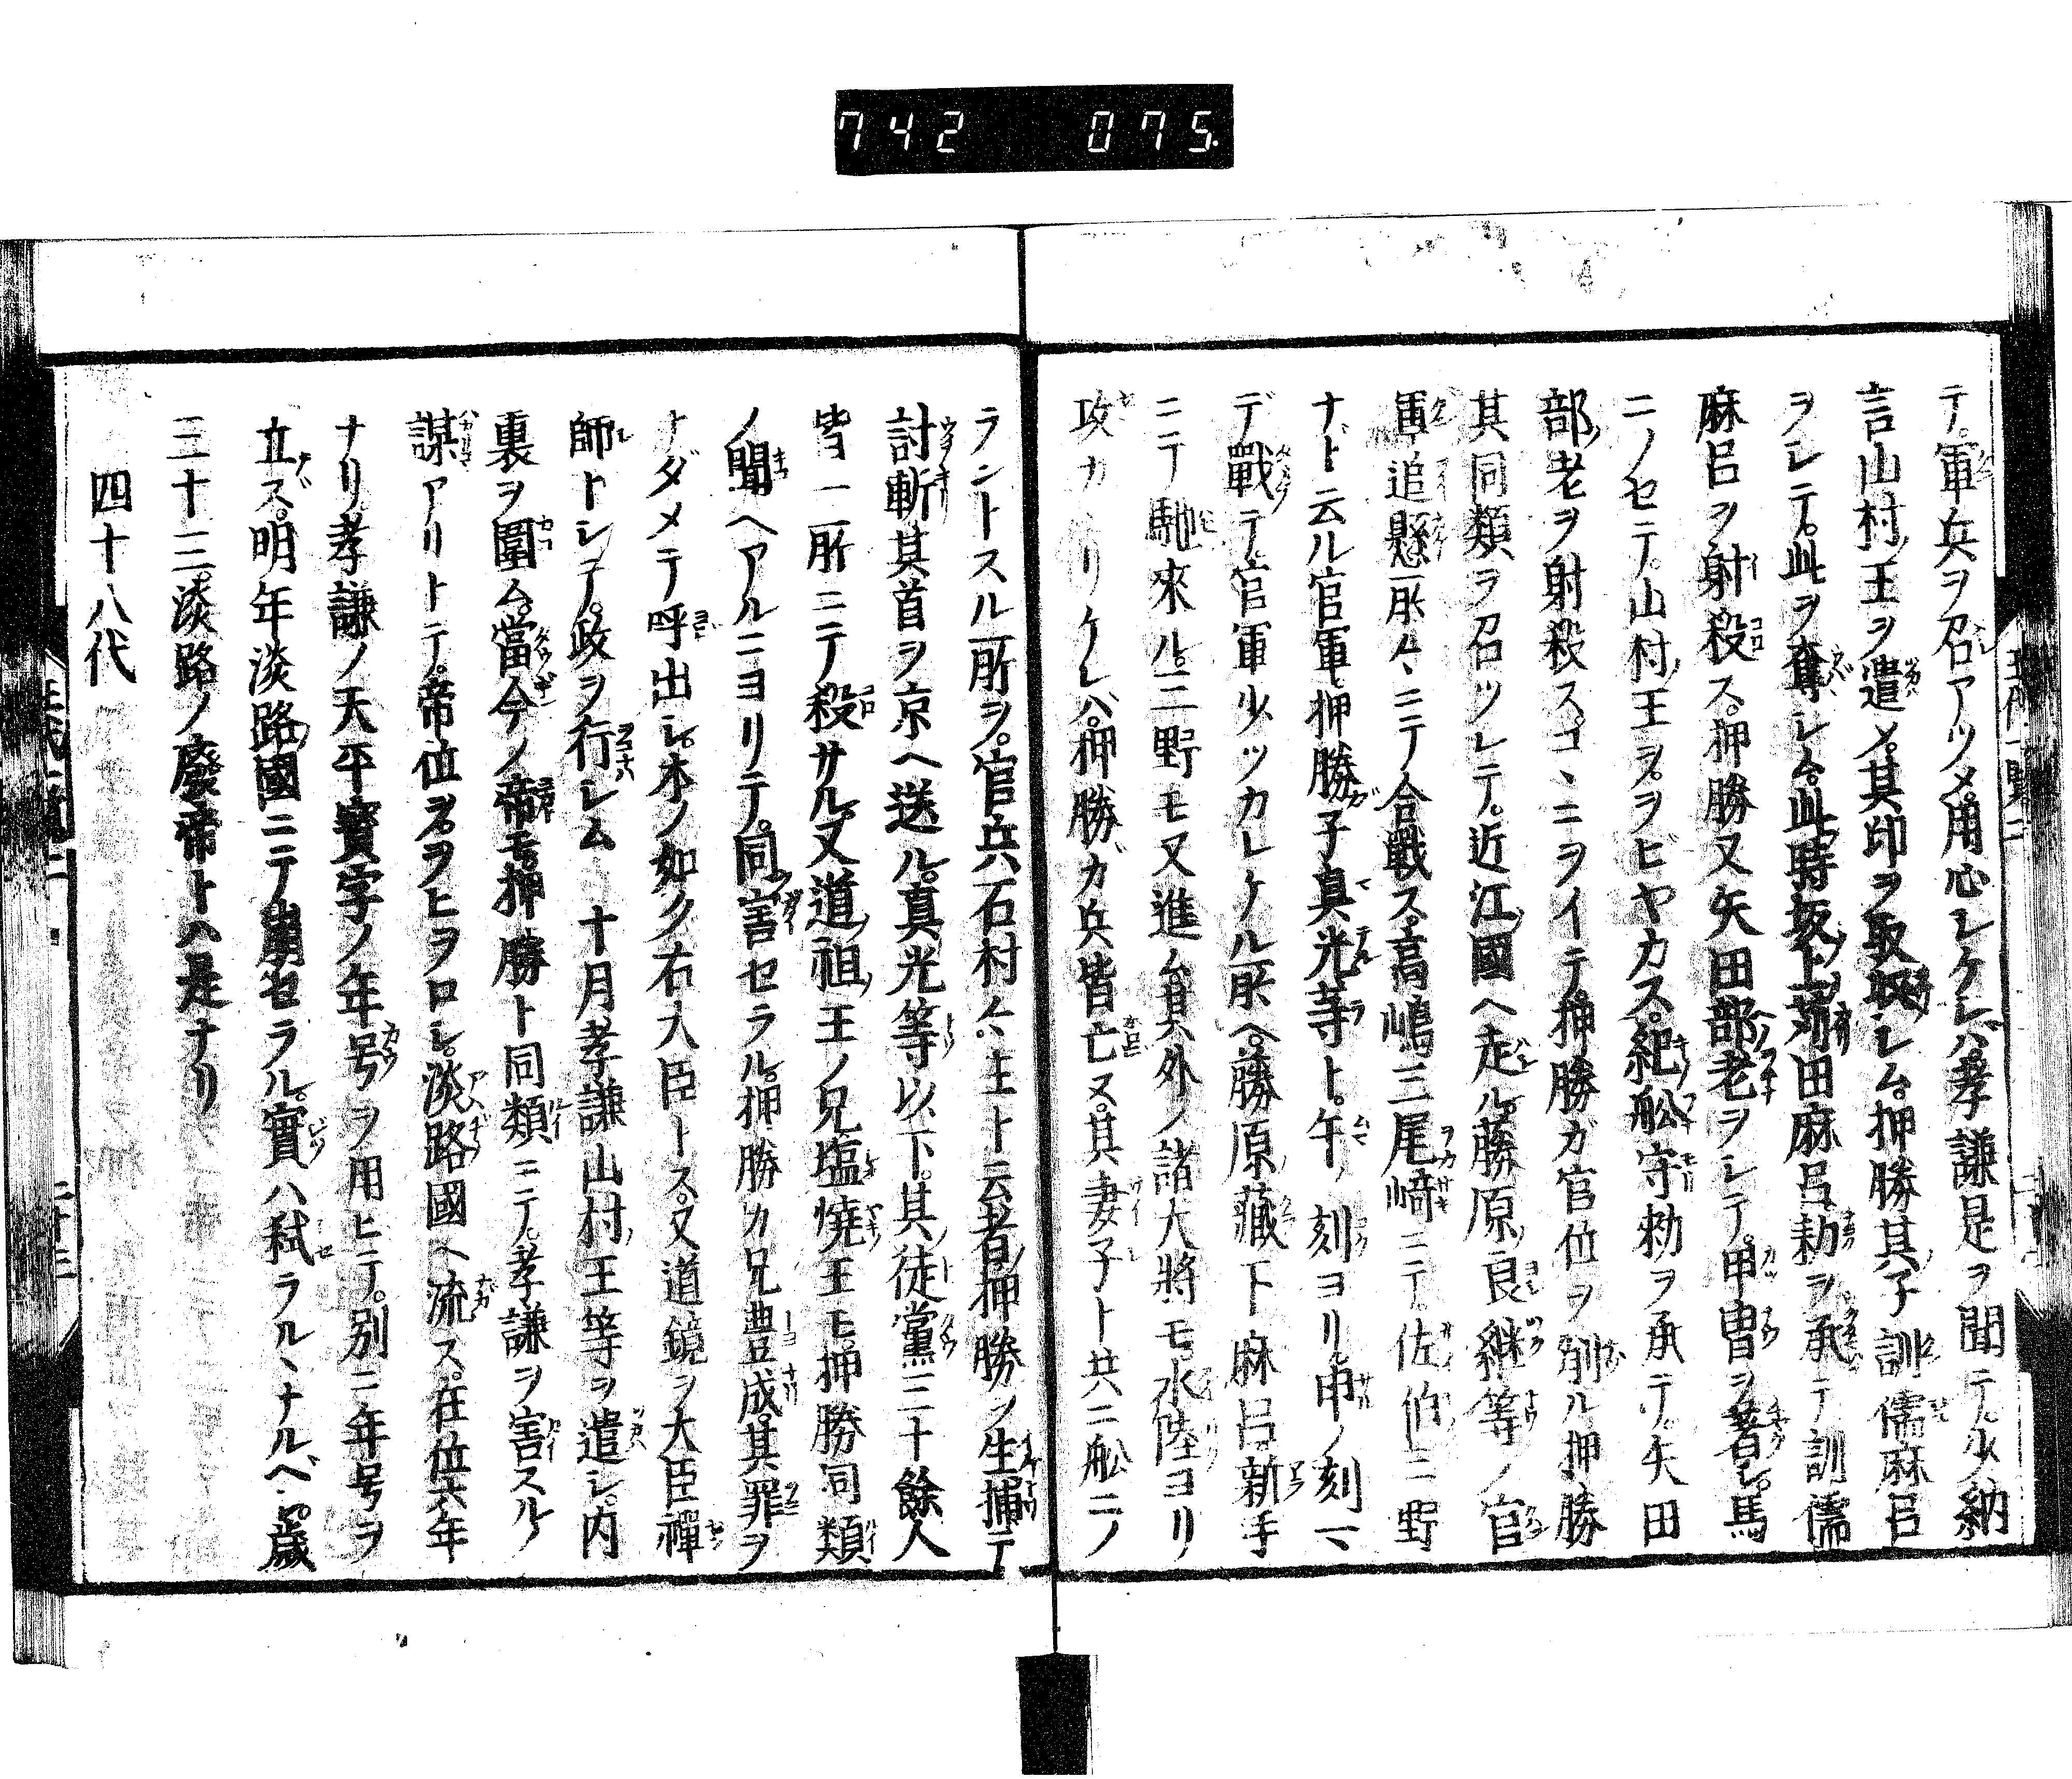 742 075
テ。軍兵ヲ召アツメ。用心シケレバ。孝謙是ヲ聞テ。少納
言山村王ヲ遣メ。其印ヲ取返シム。押勝其子訓儒麻呂
ヲシテ。此ヲ奪シム。此時坂上苅田麻呂勅ヲ承テ訓儒
麻呂ヲ射殺ス。押勝又矢田部老ヲシテ。甲冑ヲ著シ。馬
ニノセテ。山村王ヲ。ヲビヤカス。紀舩守勅ヲ承テ。矢田
部老ヲ射殺ス。コヽニヲイテ。押勝ガ官位ヲ削ル押勝
其同類ヲ召ツレテ。近江國ヘ走ル。藤原良継等ノ官
軍追懸所々ニテ合戰ス。高嶋三尾﨑ニテ。佐伯三野
ナト云ル官軍。押勝子真光等ト。午ノ刻ヨリ。申ノ刻マ
デ戰テ官軍少ツカレケル所ヘ。藤原藏下麻呂新手
ニテ馳來ル。三野モ又進ム其外ノ諸大將モ水陸ヨリ
攻カヽリケレバ。押勝ガ兵皆亡ヌ。其妻子ト共ニ舩ニノ
ラントスル所ヲ。官兵石村々主ト云者。押勝ヲ生捕テ
討斬其首ヲ京ヘ送ル。真光等以下。其徒黨三十餘人
皆一所ニテ殺サル。又道祖王ノ兄塩燒王モ押勝同類
ノ聞ヘアルニヨリテ。同害セラル。押勝カ兄豊成其罪ヲ
ナダメテ呼出シ。本ノ如ク右大臣トス。又道鏡ヲ大臣禪
師トシテ。政ヲ行シム 十月孝謙山村王等ヲ遣シ。内
裏ヲ圍ム。當今ノ帝モ。押勝ト同類ニテ。孝謙ヲ害スル
謀アリトテ。帝位ヲ。ヲヒヲロシ。淡路國ヘ流ス。在位六年
ナリ孝謙ノ天平寶字ノ年号ヲ用ヒテ。別ニ年号ヲ
立ス。明年淡路國ニテ崩セラル。實ハ弑ラルヽナルベシ。歳
三十三。淡路ノ廢帝トハ是ナリ
四十八代